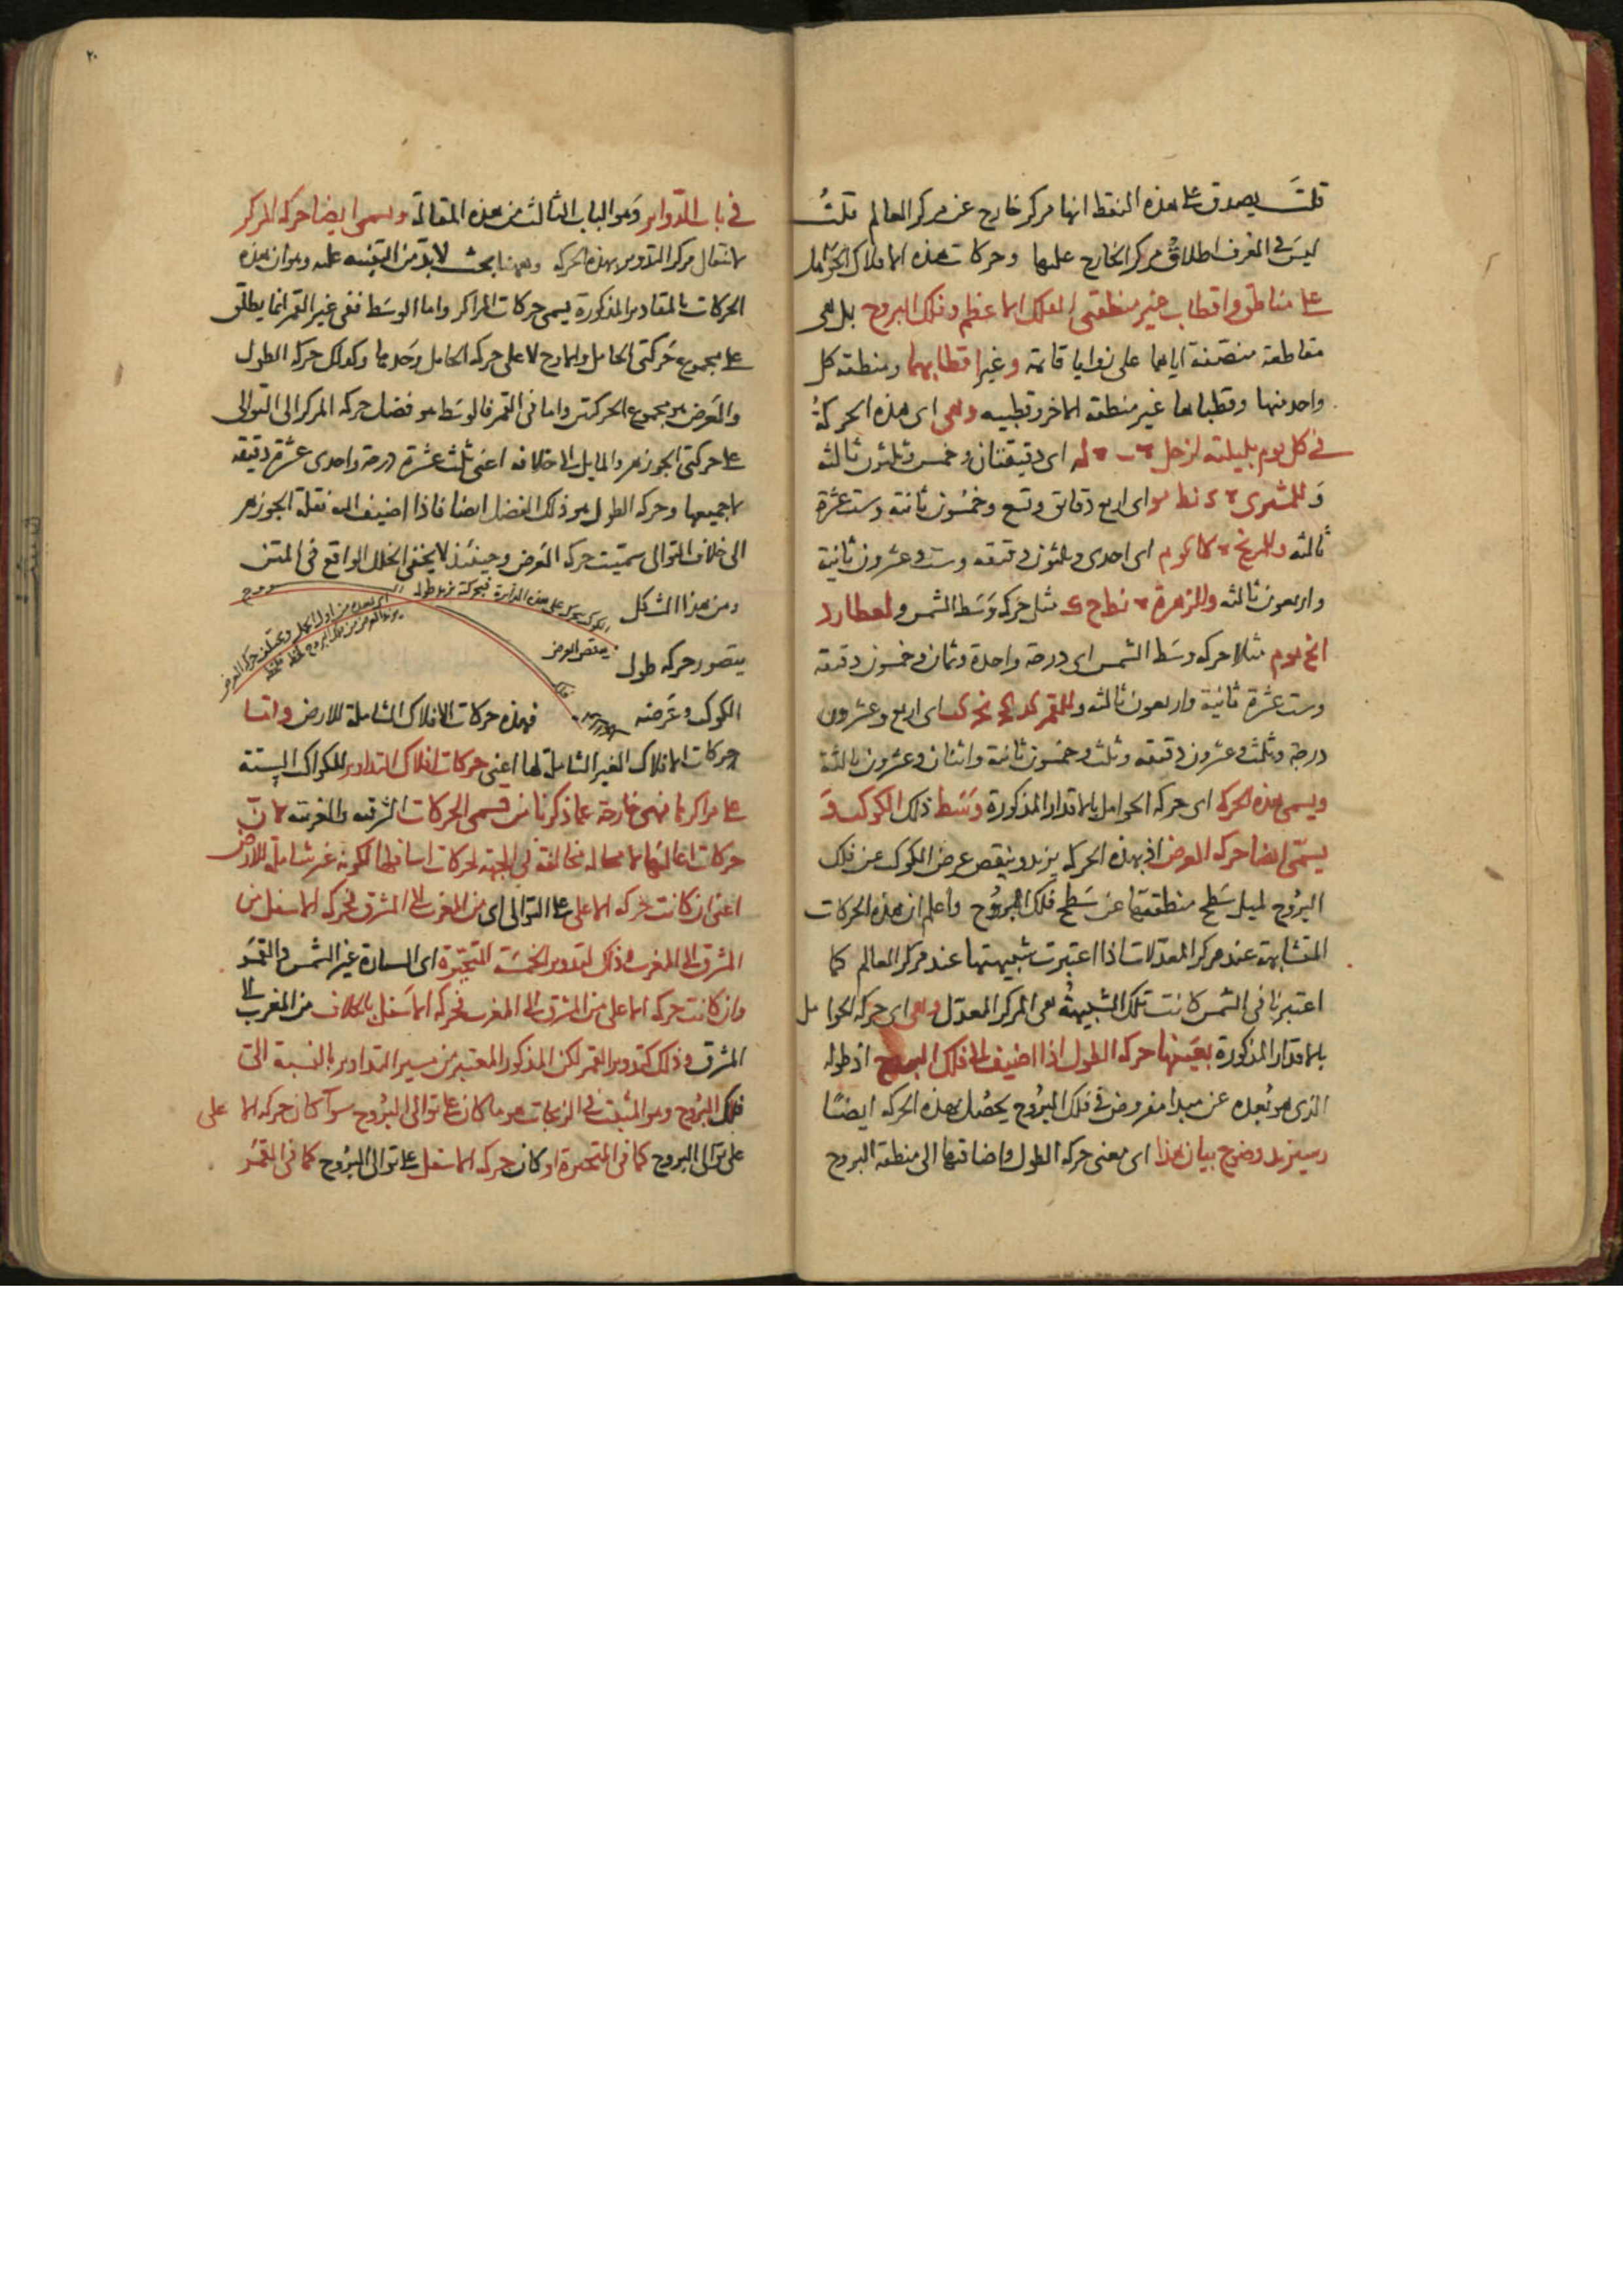 قلت يصدق على هذه النقط انها مركز خارج عن مركز العالم قلتُ
ليس فى العرف اطلاق مركز الخارج عليها وحركات هذه الافلاك الحوامل
على مناطق واقطاب غير منطقتى الفلك الاعظم وفلك البروج بل هى
مقاطعة منصفة اياهما على زوايا قائمة وغير اقطابهما ومنطقة كل
واحد منها وقطباها غير منطقة الاخر وقطبيه وهى اى هذه الحركة
فى كل يوم بليلته لزحل ٠ ب ٠ له اى دقيقتان وخمس وثلثون ثالثة
وللمشترى ٠ د نط يو اى اربع دقائق وتسع وخمسون ثانية وست عشرة
ثالثة وللمريخ ٠ لا كو م اى احدى وثلثون دقيقة وست وعشرون ثانية
واربعون ثالثة وللزهرة ٠ نط ح ك مثل حركة وسط الشمس ولعطارد
ا نح يو م مثلا حركة وسط الشمس اى درجة واحدة وثمان وخمسون دقيقة
وست عشرة ثانية واربعون ثالثة وللقمر كد كج نج كب اى اربع وعشرون
درجة وثلث وعشرون دقيقة وثلث وخمسون ثانية واثنان وعشرون ثالثة
ويسمى هذه الحركة اى حركة الحوامل بالاقدار المذكورة وسط ذلك الكوكب و
يسمّى ايضا حركة العرض اذ بهذه الحركة يزيد وينقص عرض الكوكب عن فلك
البروج لميل سطح منطقتها عن سطح فلك البروج واعلم ان هذه الحركات
المتشابهة عند مركز المعدلات اذا اعتبرت شبيهتها عند مركز العالم كما
اعتبرنا فى الشمس كانت تلك الشبيهة هى المركز المعدل وهى اى حركة الحوامل
بالاقدار المذكورة بعينها حركة الطول اذا اضيف الى فلك البروج اذ طوله
الذى هو بُعده عن مبدا مفروض فى فلك البروج يحصل بهذه الحركة ايضًا
وسيزيد وضوح بيان هذا اى معنى حركة الطول واضافتها الى منطقة البروج
٢٠
فى باب التدوير وهو الباب الثالث من هذه المقالة ويسمى ايضا حركة المركز
لانتقال مركز التدوير بهذه الحركة وههنا بحث لابد من التنبيه عليه وهو ان هذه
الحركات بالمقادير المذكورة يسمى حركات المراكز واما الوسط ففى غير القمر انما يطلق
على مجموع حركتى الحامل والاوج لا على حركة الحامل وحدها وكذلك حركة الطول
والعرض هو مجموع الحركتين واما فى القمر فالوسط هو فضل حركة المركز الى التوالى
على حركتى الجوزهر والمايل الى خلافه اعنى ثلث عشرة درجة واحدى عشرة دقيقة
باجمعها وحركة الطول هو ذلك الفضل ايضا فاذا اضيف اليه نقلة الجوزهر
الى خلاف التوالى سميت حركة العرض وحينئذ لا يخفى الخلل الواقع فى المتن
ومن هذا الشكل
يتصور حركة طول
الكوكب وعرضه
الكوكب يتحرك على هذه الدائرة فبحركته يزيد طوله
ينقص العرض
فهذه حركات الافلاك الشاملة للارض واما
حركات الافلاك الغير الشاملة لها اعنى حركات افلاك التداوير للكواكب الستة
على مراكزها فهى خارجة عما ذكرنا من قسمى الحركات الشرقية والغربية لان
حركات اعاليها لا محالة مخالفة فى الجهة لحركات اسافلها لكونه غير شاملة للارض
اعنى ان كانت حركة الاعلى على التوالى اى من المغرب الى المشرق فحركة الاسفل من
المشرق الى المغرب وذلك لتدوير الخمسة المتحيّرة اى السيارة غير الشمس والقمر
وان كانت حركة الاعلى من المشرق الى المغرب فحركة الاسفل بالخلاف من المغرب الى
المشرق وذلك كتدوير القمر لكن المذكور المعتبر من مسير التداوير بالنسبة الى
فلك البروج وهو المثبت فى الزيجات هو ما كان على توالى البروج سوآ كان حركة الاعلى
على توالى البروج كما فى المتحيرة او كان حركة الاسفل على توالى البروج كما فى القمر